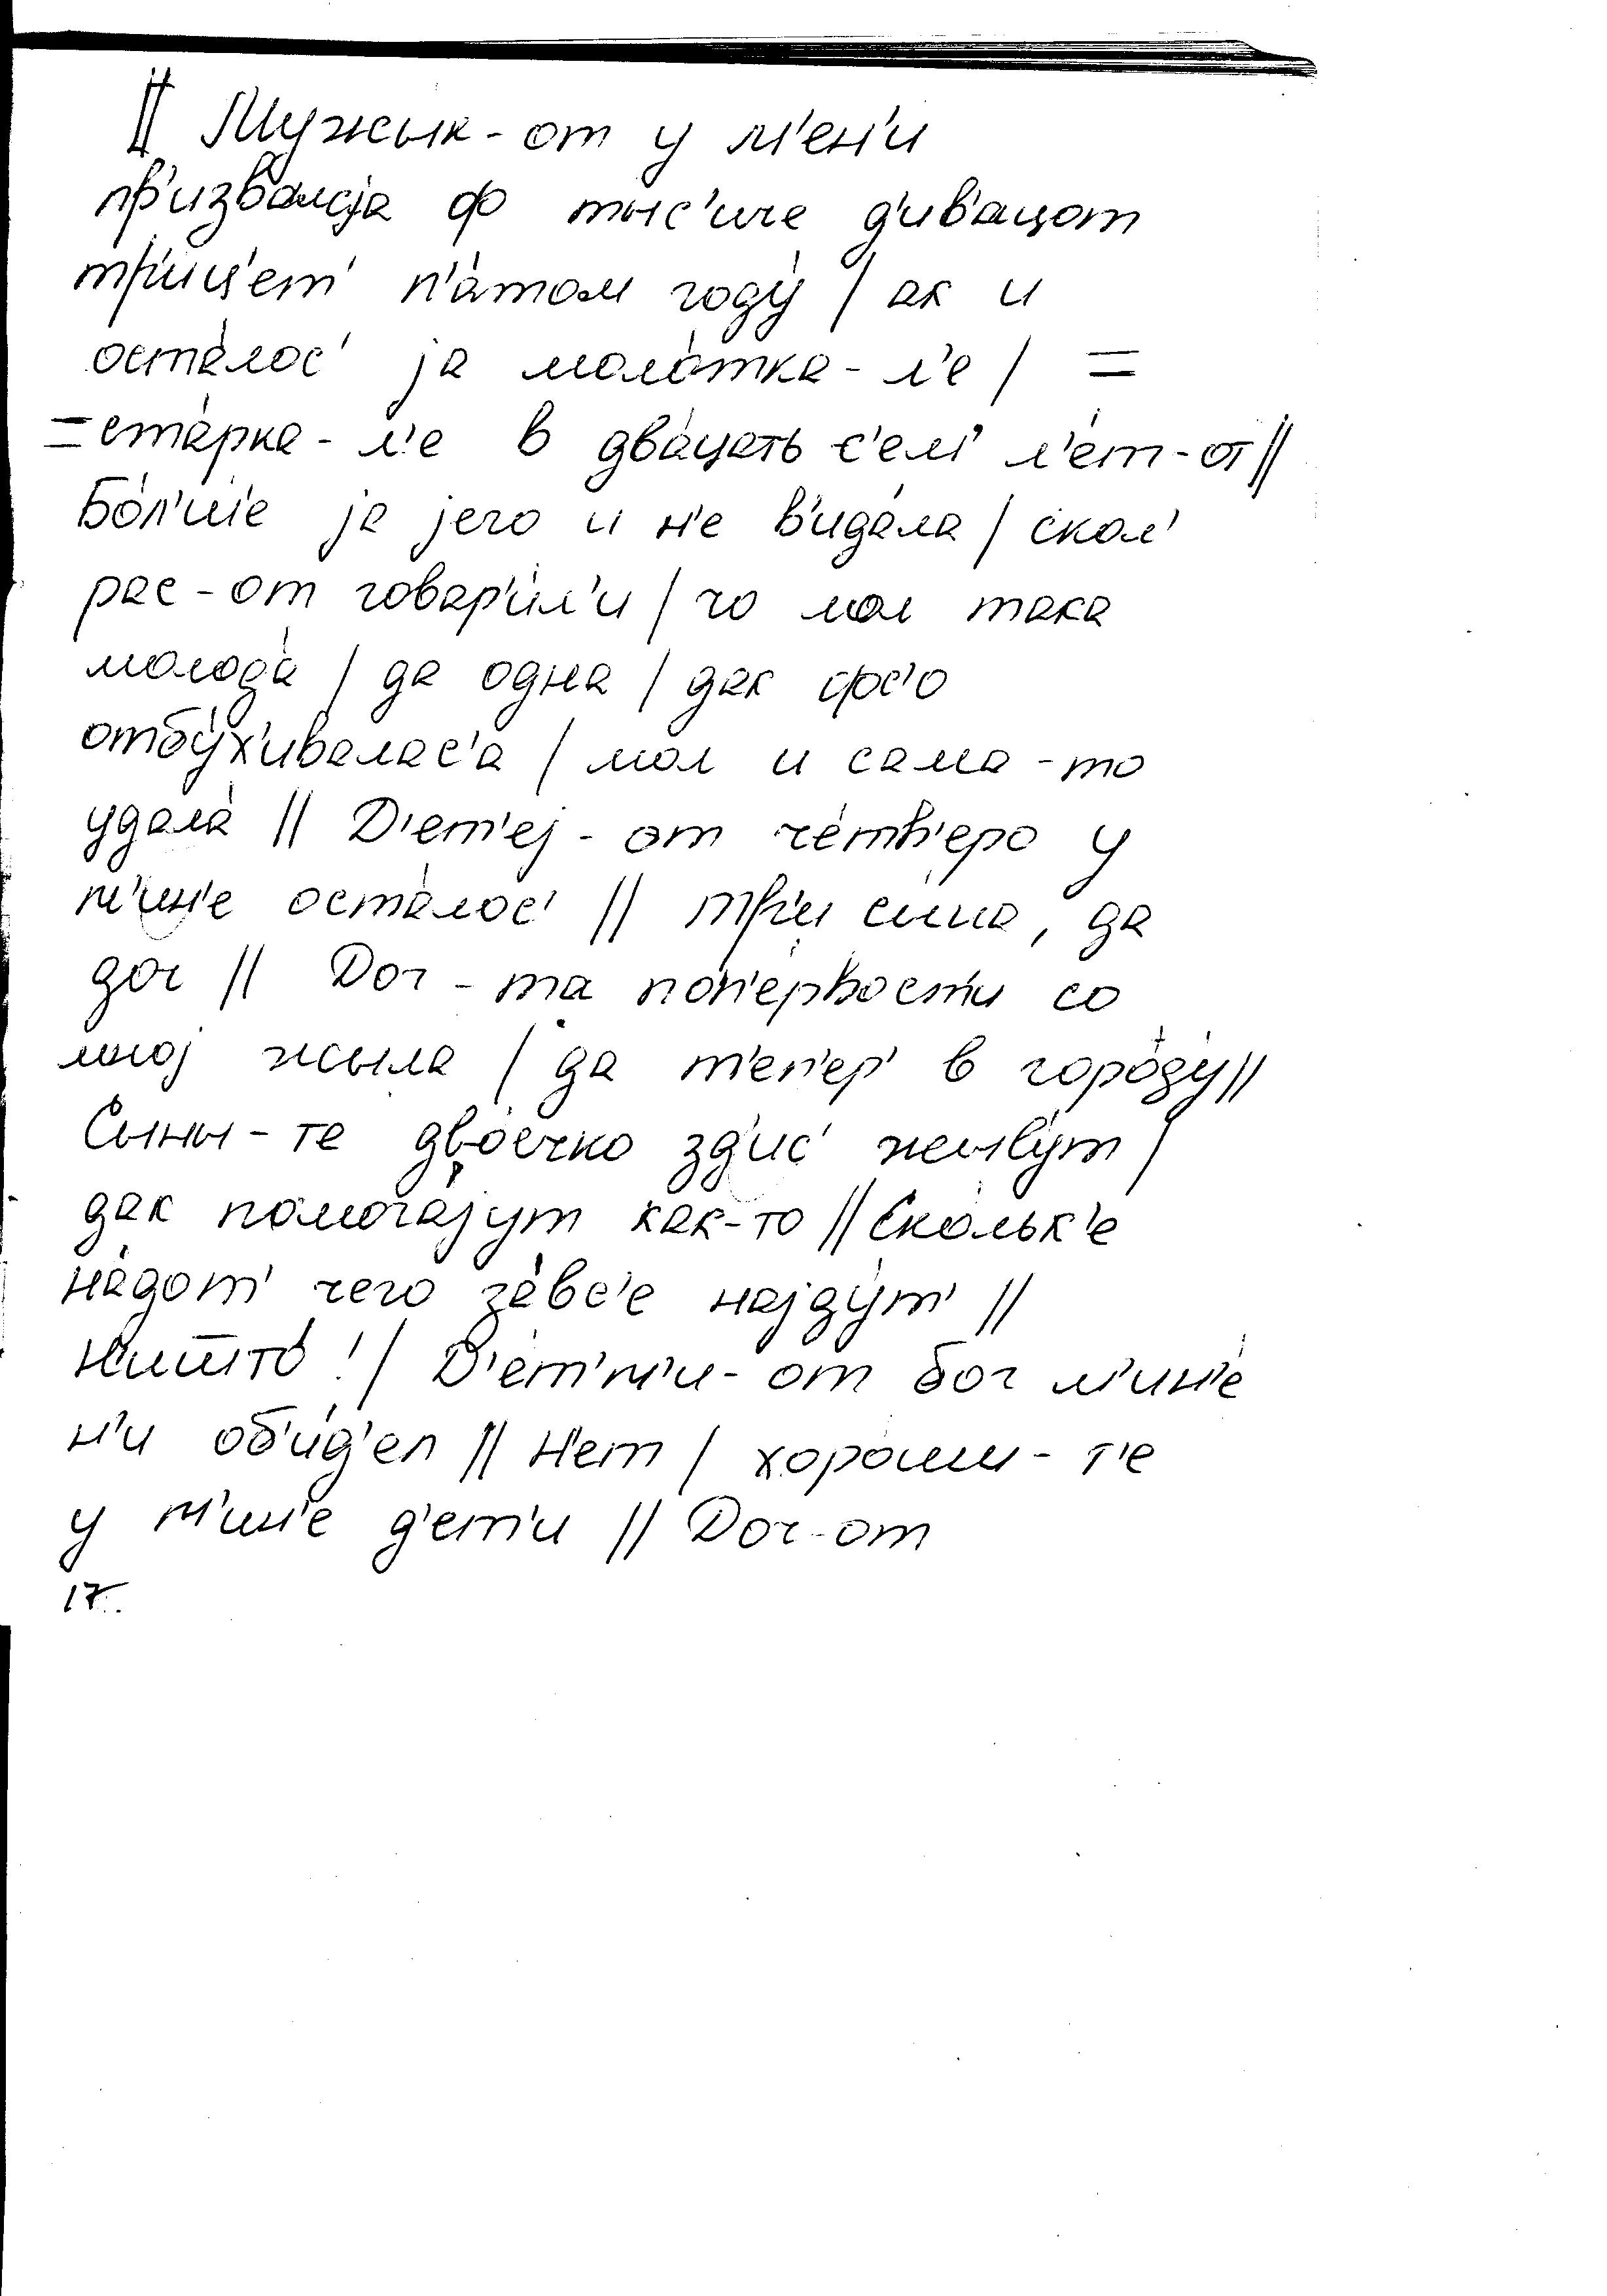 || Мужык-от у м'ен'и
пр'извалсjа ф тыс'иче д'ив'ацот
тр'иц'ет' п'а́том году́ | ак и
оста́лос' jа мало́тка-л'е | =
= ста́рка-л'е в два́цать с'ем' л'ет-от ||
Бо́л'ше jа jего и н'е в'ида́ла | скол'
рас-от говар'и́л'и | чо мол така
молода́ | да одна | дак фс'о
отбу́х'ивалас'а | мол и сама-то
удала́ || Д'ет'еj-от че́тв'еро у
м'ин'е оста́лос' || тр'и сына, да
доч || Доч-та поп'е́рвост'и со
мноj жыла | да т'еп'ер' в горо́ду ||
Сыны-те дво́ечко зд'ис' жыву́т |
дак помога́jут как-то || Ско́льк'е
на́дот' чего за́вс'е наjду́т' ||
Ништо́! | Д'ет'м'и-от бог м'ин'е
н'и об'и́д'ел || Н'ет | хоро́шы-т'е
у м'ин'е д'ет'и || Доч-от
17.